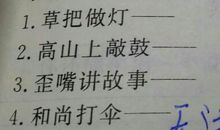 1.草把做灯——
2.高山上敲鼓——
3.歪嘴讲故事——
4.和尚打伞——无